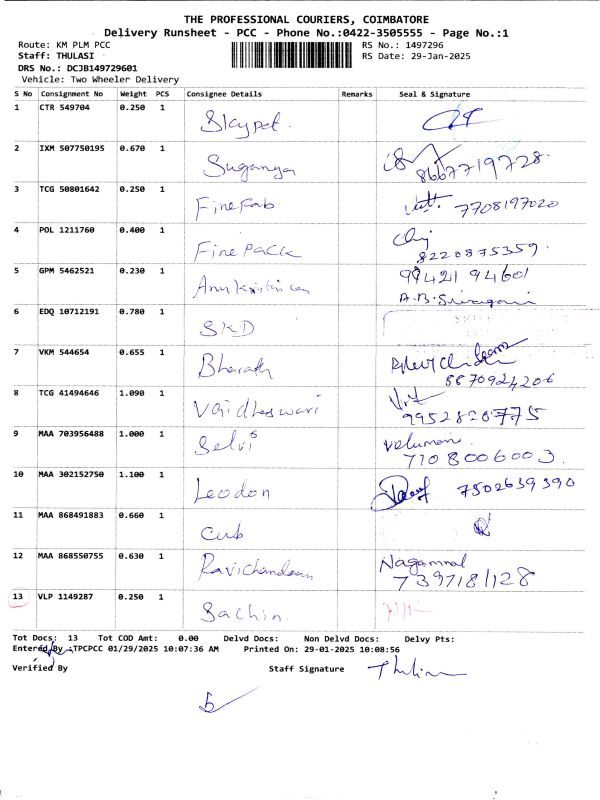 THE PROFESSIONAL COURIERS, COIMBATORE
Delivery Runsheet - PCC - Phone No.:0422-3505555 - Page No.:1
Route: KM PLM PCC RS No.: 1497296
Staff: THULASI RS Date: 29-Jan-2025
DRS No.: DCJB149729601
Vehicle: Two Wheeler Delivery
S No Consignment No Weight PCS Consignee Details Remarks Seal & Signature
1 CTR 549704 0.250 1 Skypet.
2 IXM 507750195 0.670 1 Suganya 8667719728.
3 TCG 50801642 0.250 1 Finefab 7708197020
4 POL 1211760 0.400 1 Finepack 8220875359.
5 GPM 5462521 0.230 1 99421 94601
A.B.Sivagami
6 EDQ 10712191 0.780 1 SKD
7 VKM 544654 0.655 1 Bharath 8870924206
8 TCG 41494646 1.090 1 Vaidheswari
9 MAA 703956488 1.000 1 Selvi 7108006003.
10 MAA 302152750 1.100 1 Leodon 7502639390
11 MAA 868491883 0.660 1 Cub
12 MAA 868550755 0.630 1 Ravichandran Nagammal
7397181128
13 VLP 1149287 0.250 1 Sachin.
Tot Docs: 13 Tot COD Amt: 0.00 Delvd Docs: Non Delvd Docs: Delvy Pts:
Entered By :TPCPCC 01/29/2025 10:07:36 AM Printed On: 29-01-2025 10:08:56
Verified By Staff Signature